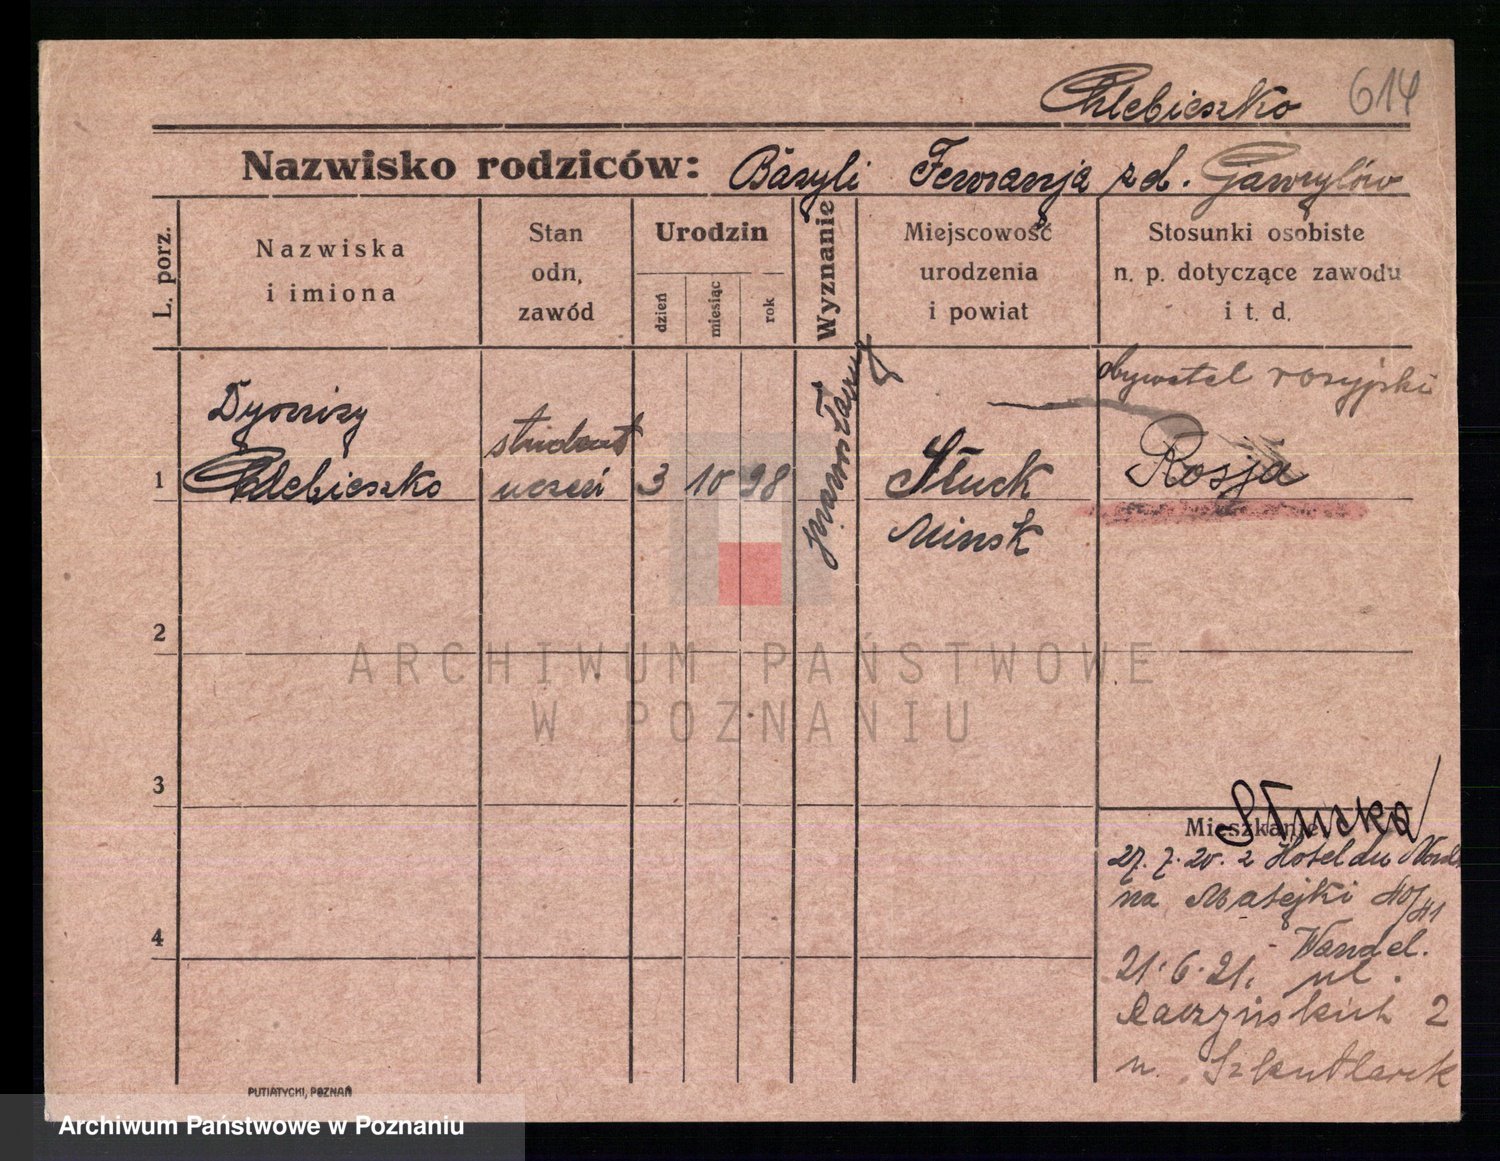 Chlebieszko 614
Nazwisko rodziców: Bazyli zd. Gawryłów
L. porz.
Nazwiska
i imiona
Stan
odn,
zawód
Urodzin
dzień
miesiąc
rok
Wyznanie
Miejscowość
urodzenia
i powiat
Stosunki osobiste
n. p. dotyczące zawodu
i t. d.
1
Dyonizy
Chlebieszko
student
uczeń
3 10 98
prawosławny
Słuck
Minsk
obywatel rosyjski
Rosja
2
3
4
Słucka
Mieszkanie
27. 7. 20. z Hotel du Nord
na Matejki 40/41
Wandel.
21. 6. 21. ul.
Raczyńskich 2
n.
PUTIATYCKI, POZNAŃ
ARCHIWUM PAŃSTWOWE
W POZNANIU
Archiwum Państwowe w Poznaniu